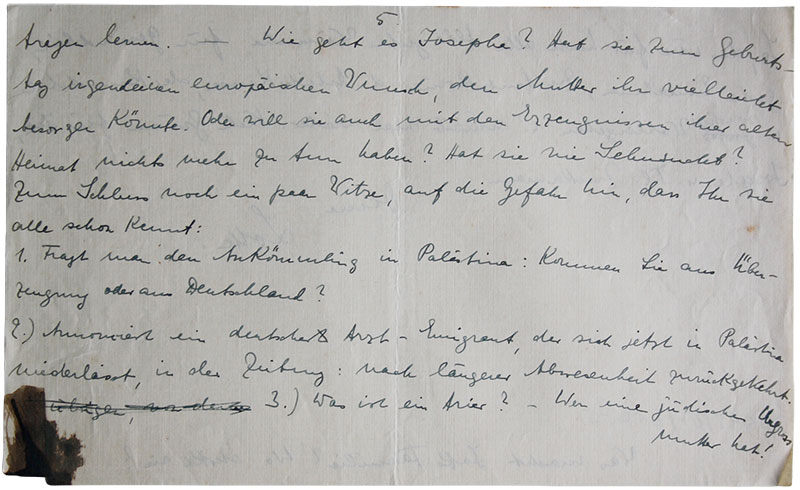 5
tragen lernen. — Wie geht es Josepha? Hat sie zum Geburts-
tag irgendeinen europäischen Wunsch, den Mutter ihr vielleicht
besorgen könnte. Oder will sie auch mit den Erzeugnissen ihrer alten
Heimat nichts mehr zu tun haben? Hat sie nie Sehnsucht?
Zum Schluss noch ein paar Witze, auf die Gefahr hin, dass Ihr sie
alle schon kennt:
1. Fragt man den Ankömmling in Palästina: Kommen Sie aus Über-
zeugung oder aus Deutschland?
2.) Annonciert ein deutscher Arzt-Emigrant, der sich jetzt in Palästina
niederlässt, in der Zeitung: nach längerer Abwesenheit zurückgekehrt.
übrigen, von der 3.) Was ist ein Arier? – Wer eine jüdische Urgross
mutter hat!